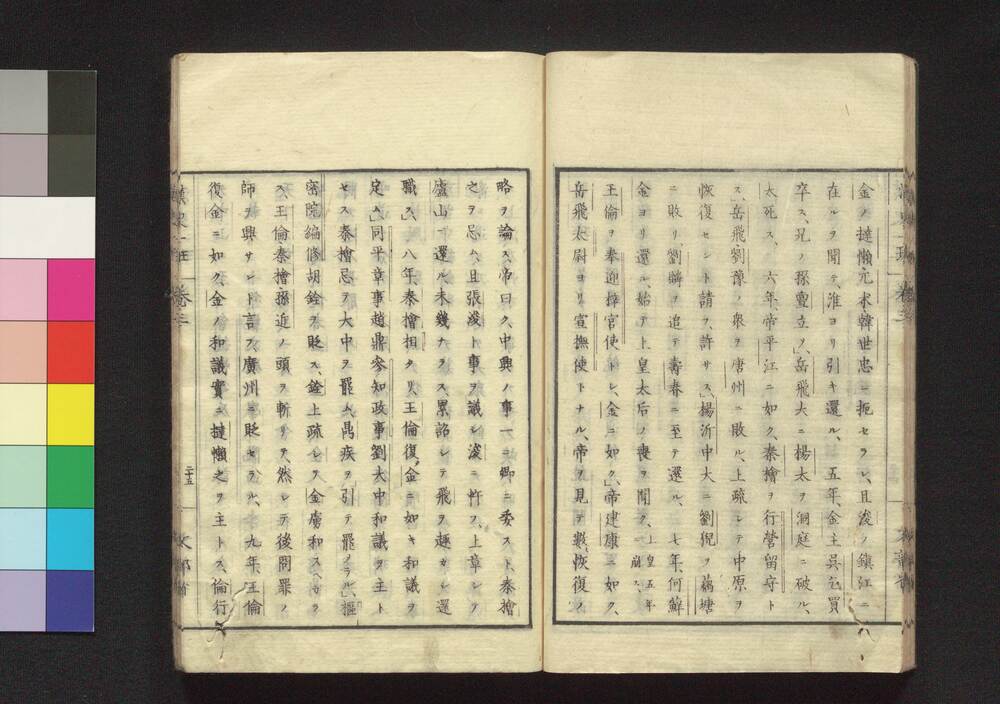 金ノ撻懶兀朮韓世忠ニ扼セラレ、且浚ノ鎮江ニ
在ルヲ聞テ、淮ヨリ引キ還ル、 五年、金主呉乞買
卒ス、兄ノ孫亶立ツ、岳飛大ニ楊太ヲ洞庭ニ破ル、
太死ス、 六年帝平江ニ如ク、秦檜ヲ行營留守ト
ス、岳飛劉豫ノ衆ヲ唐州ニ敗ル、上疏シテ中原ヲ
恢復セント請フ、許サス、楊沂中大ニ劉猊ヲ藕塘
ニ敗リ、劉麟ヲ追テ壽春ニ至テ還ル、 七年、何蘚
金ヨリ還ル、始テ上皇太后ノ喪ヲ聞ク、上皇五年崩ス、
王倫ヲ奉迎梓官使トシ、金ニ如ク、帝建康ニ如ク、
岳飛太尉ヨリ宣撫使トナル、帝ヲ見テ數恢復ノ
略ヲ論ス、帝曰ク、中興ノ事一ニ卿ニ委スト、秦檜
之ヲ忌ム、且張浚ト事ヲ議シ浚ニ忤フ、上章シテ
廬山ニ還ル、未幾ナラス累詔シテ飛ヲ趣カシ還
職ス、 八年、秦檜相タリ、王倫復金ニ如キ和議ヲ
定ム、同平章事趙鼎參知政事劉大中和議ヲ主ト
セス秦檜忌ヲ大中ヲ罷ム、鼎疾ヲ引テ罷ラル、樞
密院編修胡銓ヲ貶ス、銓上疏シテ金虜和スヘカラ
ス、王倫秦檜孫近ノ頭ヲ斬リテ、然シテ後問罪ノ
師ヲ興サント言フ、廣州ニ貶セラル、 九年、王倫
復金ニ如ク、金ノ和議實ニ撻懶之ヲ主トス、倫行
漢史一班 巻三 二十五 文部省